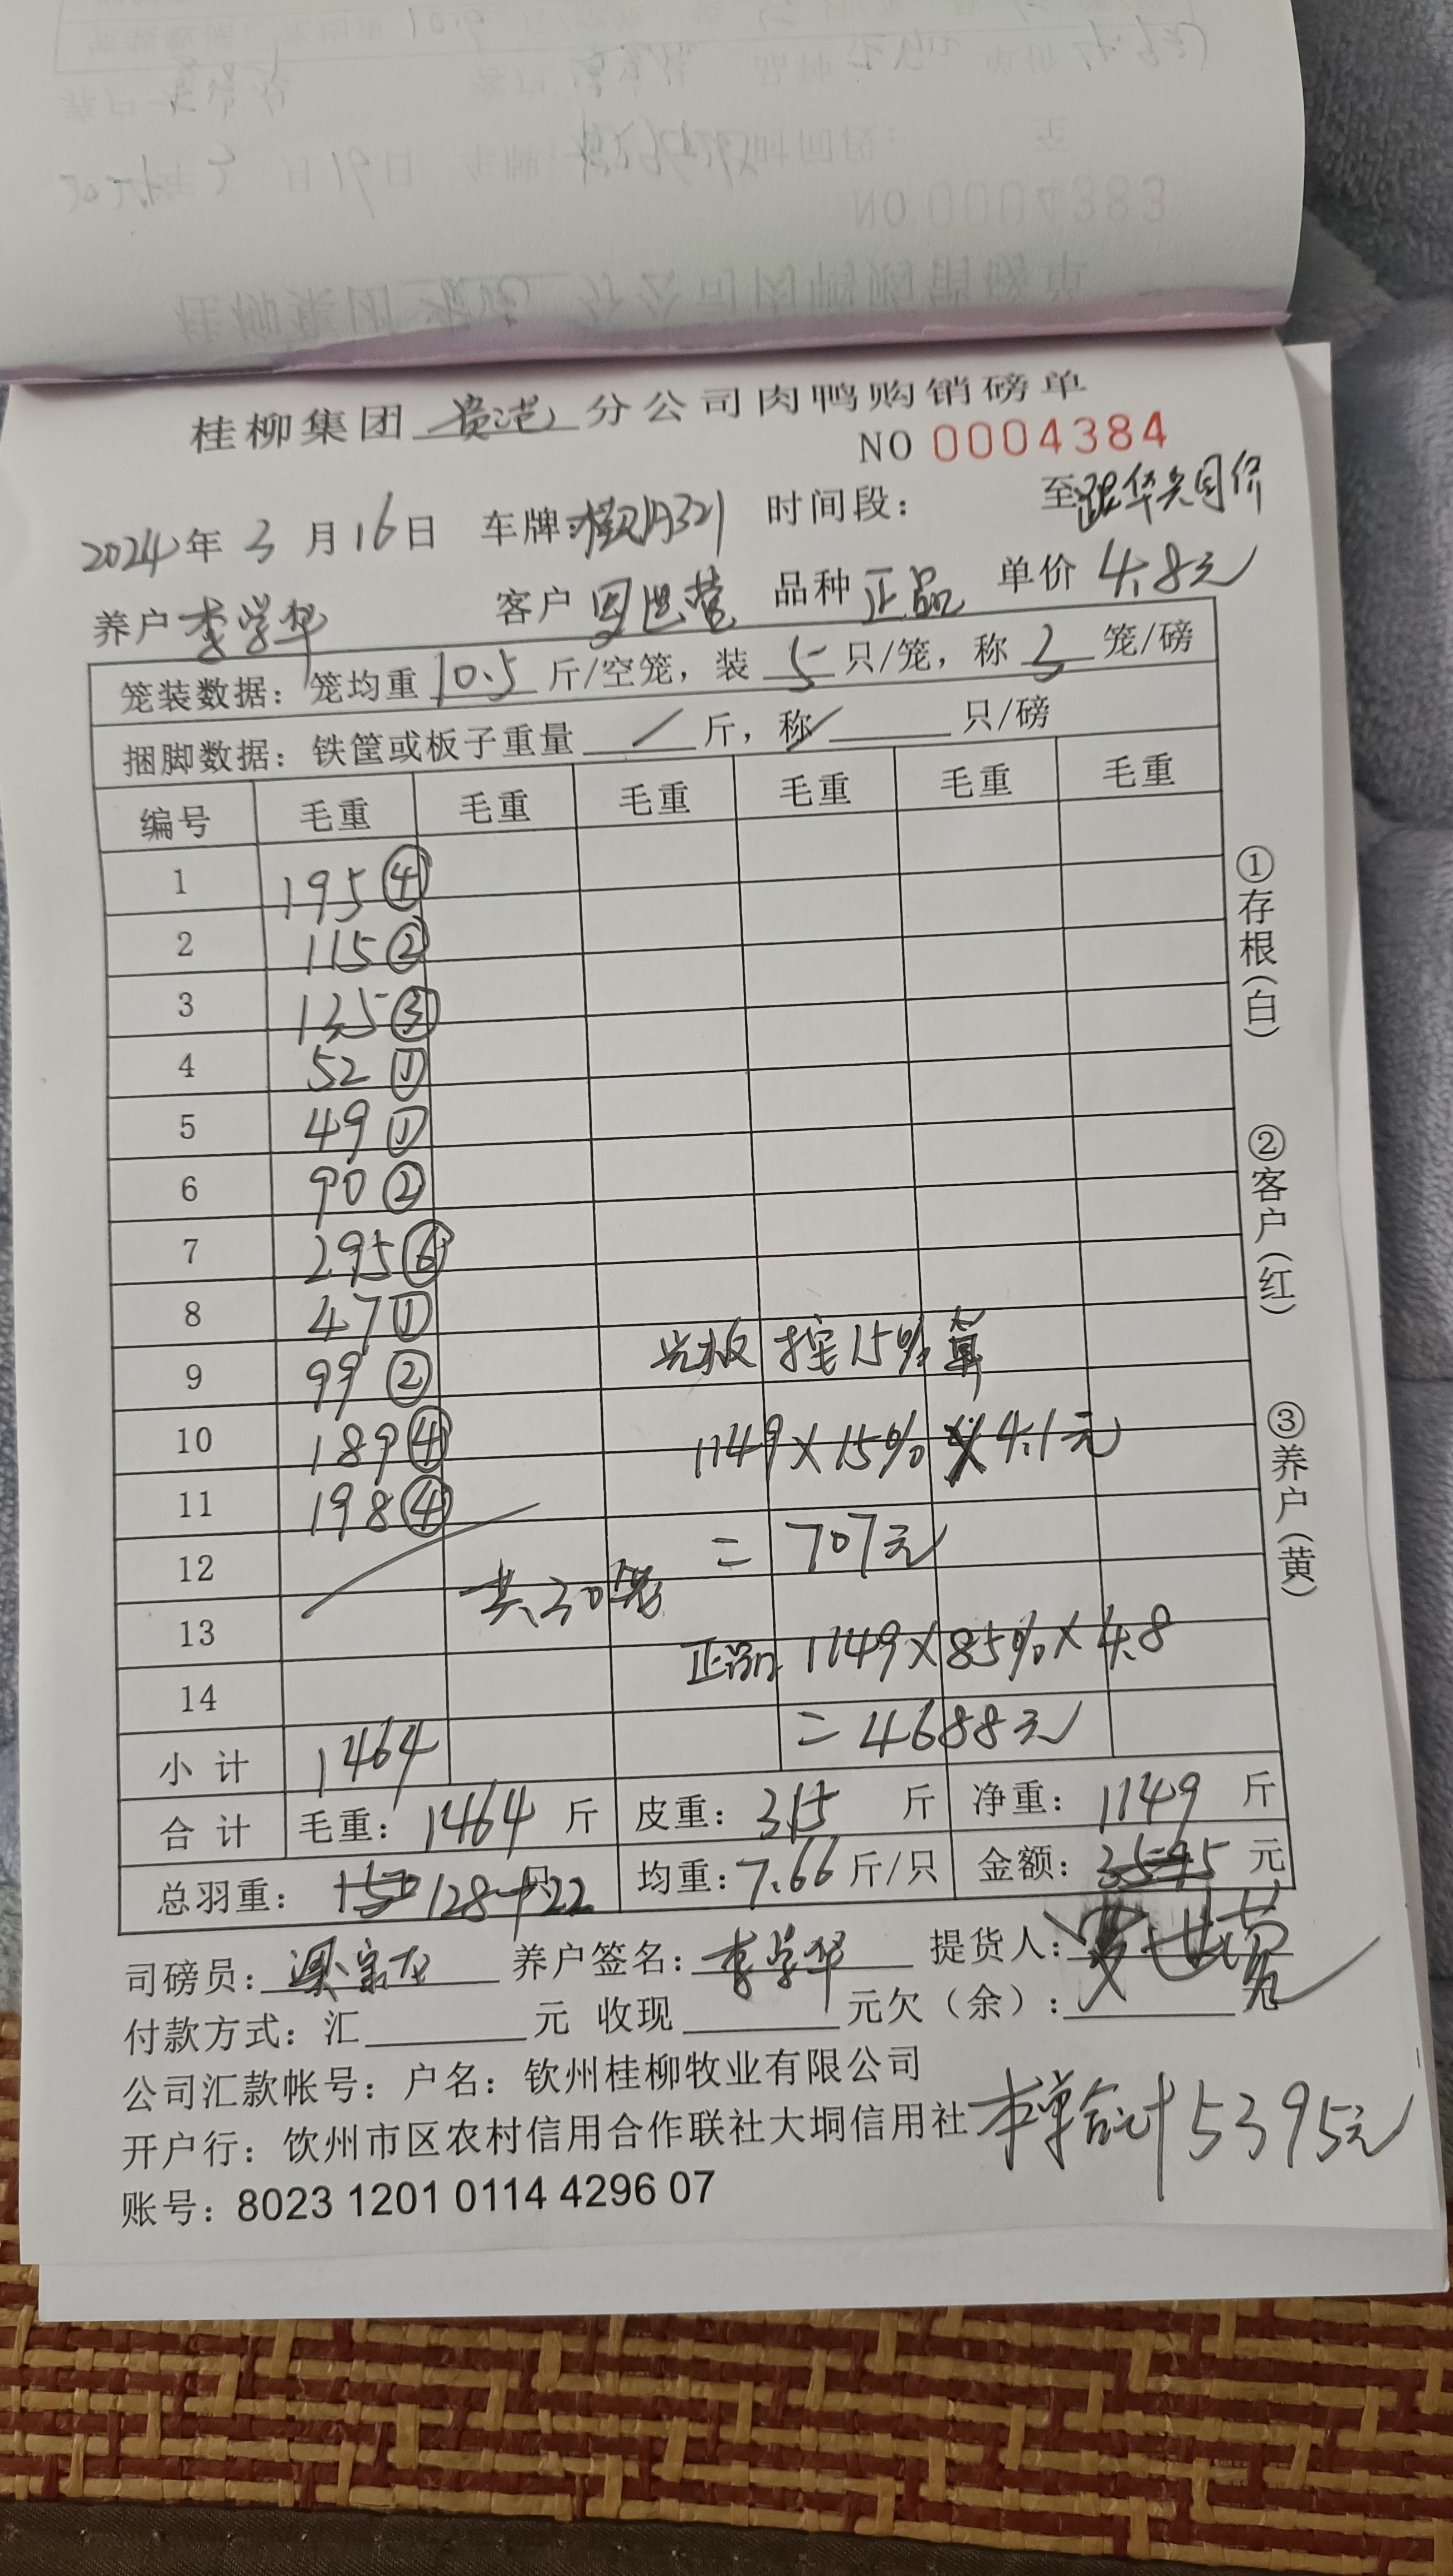 NO 0004383
桂柳集团 贵港 分公司肉鸭购销磅单
NO 0004384
2024年 3 月 16 日 车牌: 时间段: 至 跟华先同价
养户 李学华 客户 品种 正品 单价 4.8元
笼装数据: 笼均重 10.5 斤/空笼, 装 5 只/笼, 称 3 笼/磅
捆脚数据: 铁筐或板子重量 / 斤, 称 / 只/磅
编号 毛重 毛重 毛重 毛重 毛重 毛重
1 195 ④
2 115 ②
3 135 ③
4 52 ①
5 49 ①
6 90 ②
7 295 ⑥
8 47 ①
9 99 ② 光板 按15% 算
10 189 ④ 1149×15%×4.1元
11 198 ④
12 共30笼 = 707元
13 正品 1149×85%×4.8
14
小计 1464 = 4688元
合计 毛重: 1464 斤 皮重: 315 斤 净重: 1149 斤
总羽重: 150 128+22 只 均重: 7.66 斤/只 金额: 元
司磅员: 养户签名: 李学华 提货人:
付款方式: 汇 元 收现 元欠(余):
公司汇款帐号: 户名: 钦州桂柳牧业有限公司
开户行: 饮州市区农村信用合作联社大垌信用社 本单合计5395元
账号: 8023 1201 0114 4296 07
①存根(白)
②客户(红)
③养户(黄)